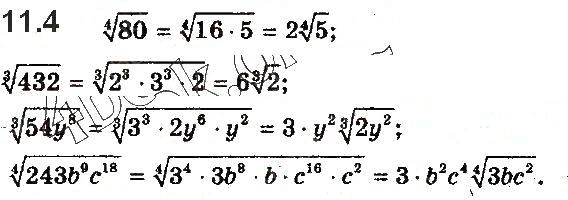 11.4 ⁴√80 = ⁴√(16 · 5) = 2⁴√5;
³√432 = ³√(2³ · 3³ · 2) = 6³√2;
³√(54y⁸) = ³√(3³ · 2y⁶ · y²) = 3 · y² ³√(2y²);
⁴√(243b⁹c¹⁸) = ⁴√(3⁴ · 3b⁸ · b · c¹⁶ · c²) = 3 · b²c⁴ ⁴√(3bc²).